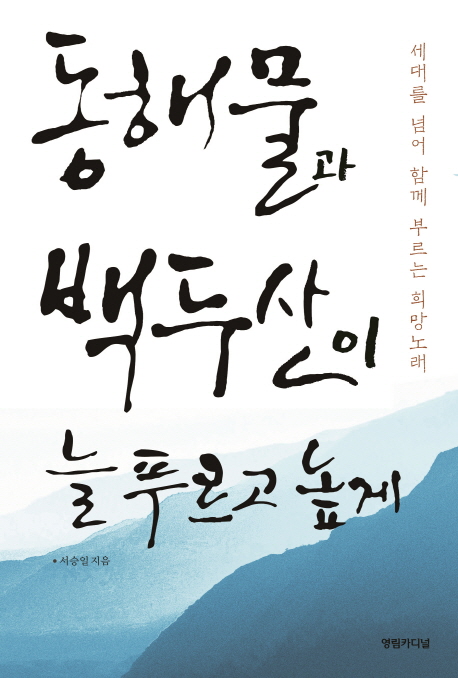 동해물과
백두산이
늘 푸르고 높게
세대를 넘어 함께 부르는 희망노래
• 서승일 지음
영림카디널